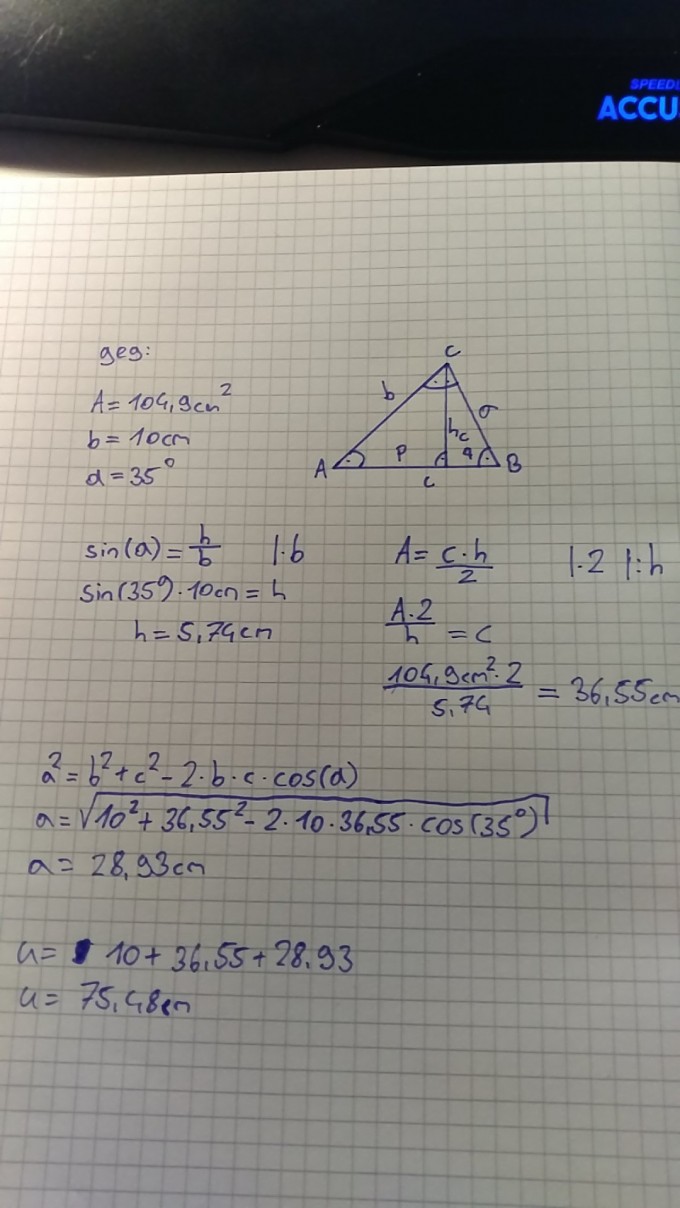 SPEED
ACCU
geg:
A = 104,9cm²
b = 10cm
α = 35°
C
b
a
hc
A
p
q
B
c
sin(α) = h/b |·b
sin(35°)·10cm = h
h = 5,74cm
A = c·h/2 |·2 |:h
A·2/h = c
104,9cm²·2/5,74 = 36,55cm
a² = b² + c² - 2·b·c·cos(α)
a = √10² + 36,55² - 2·10·36,55·cos(35°)
a = 28,93cm
u = 10 + 36,55 + 28,93
u = 75,48cm